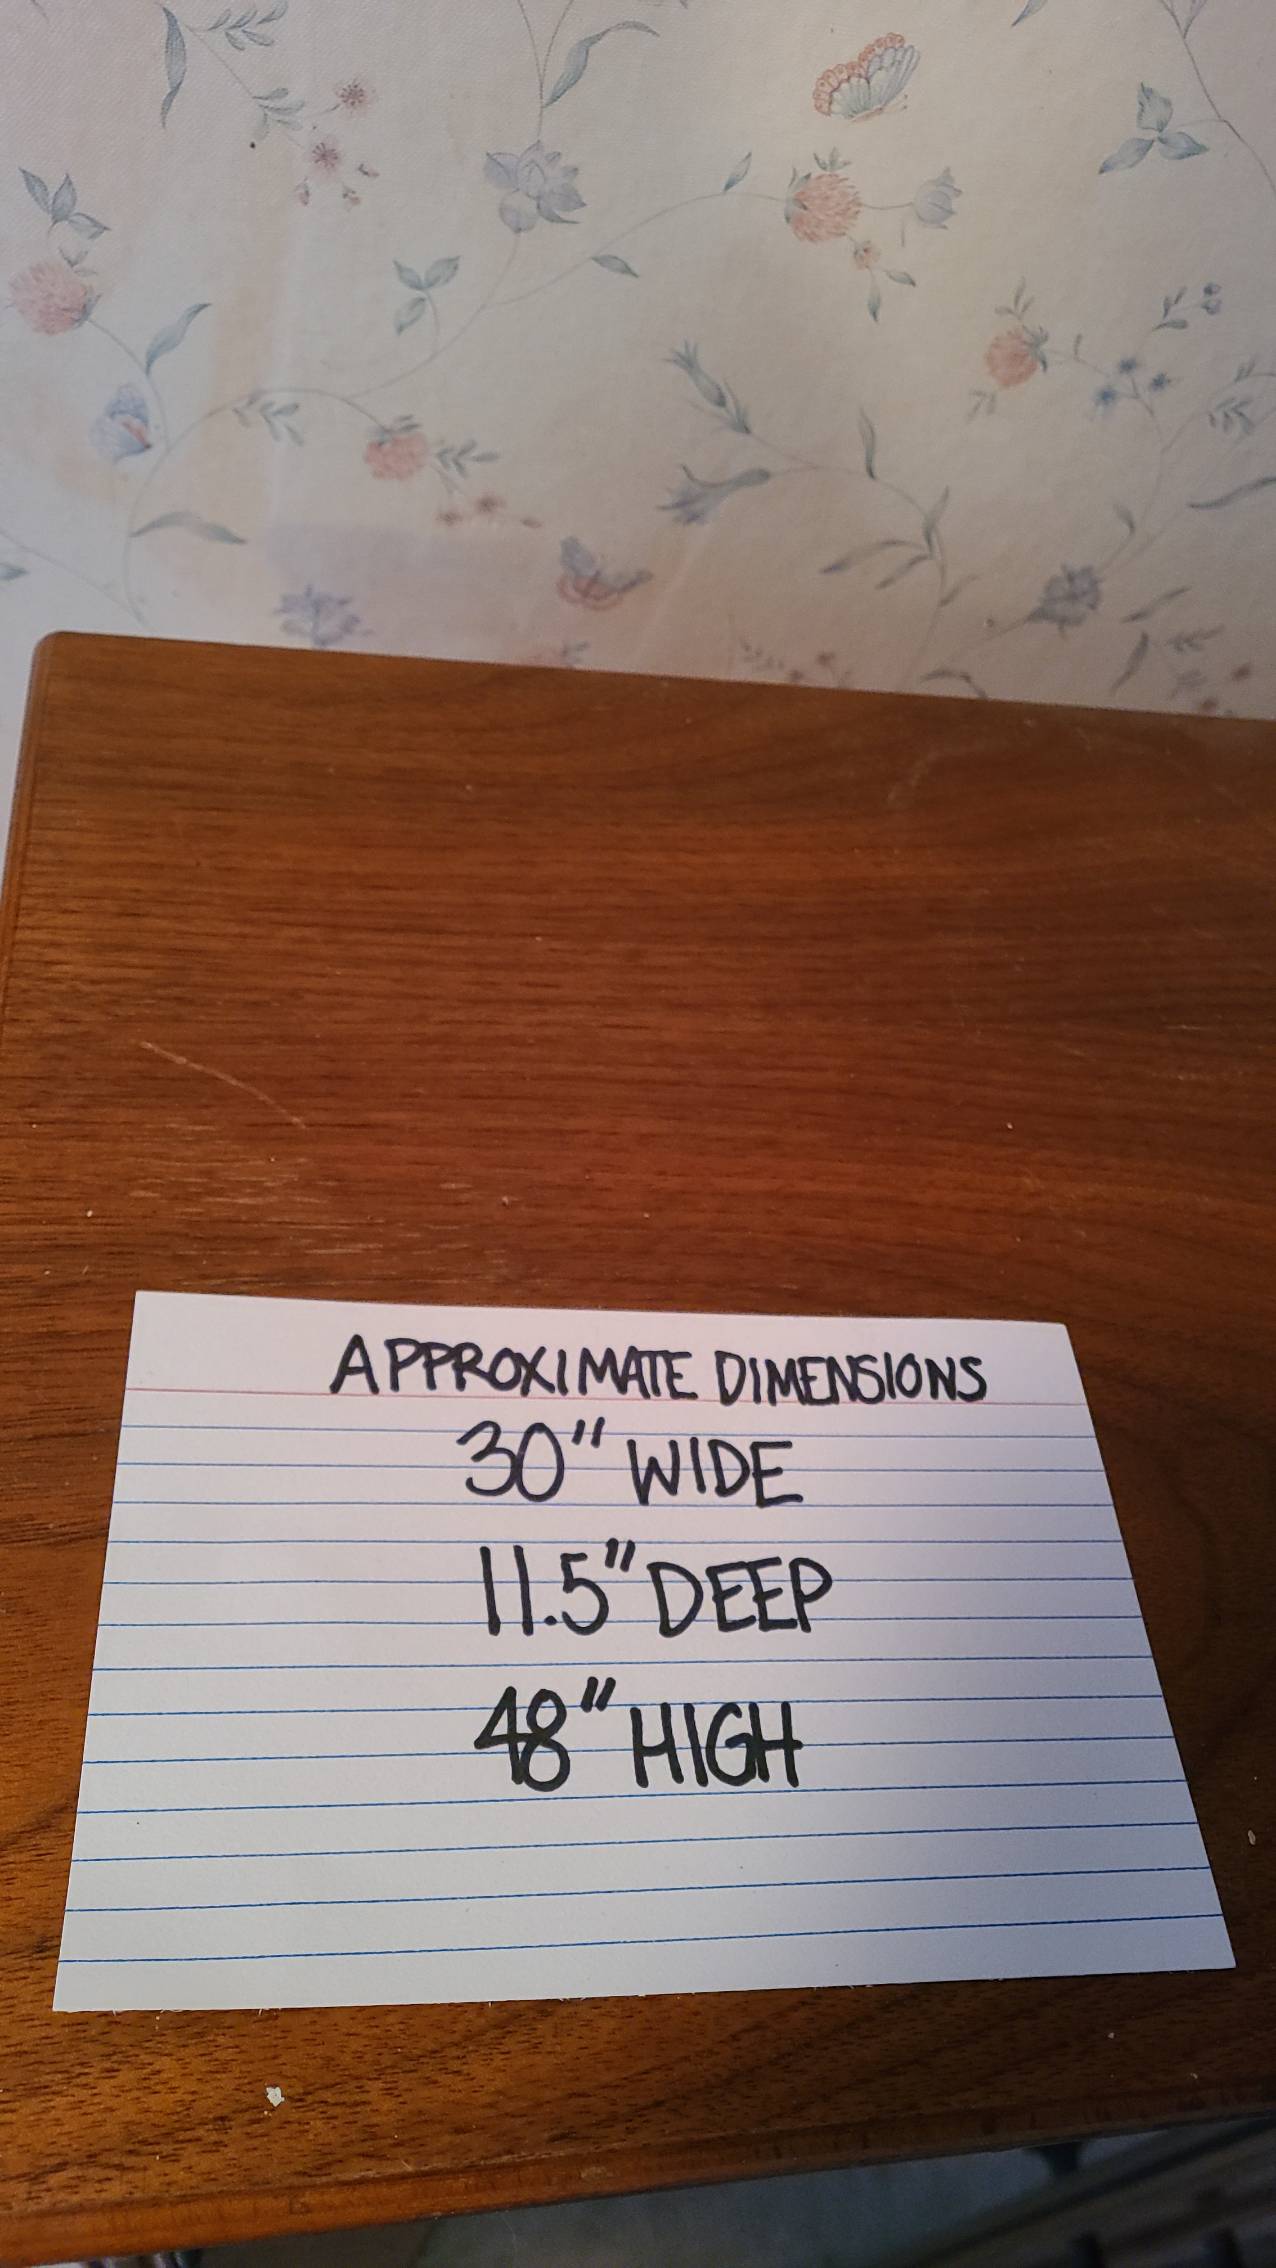 APPROXIMATE DIMENSIONS
30" WIDE
11.5" DEEP
48" HIGH